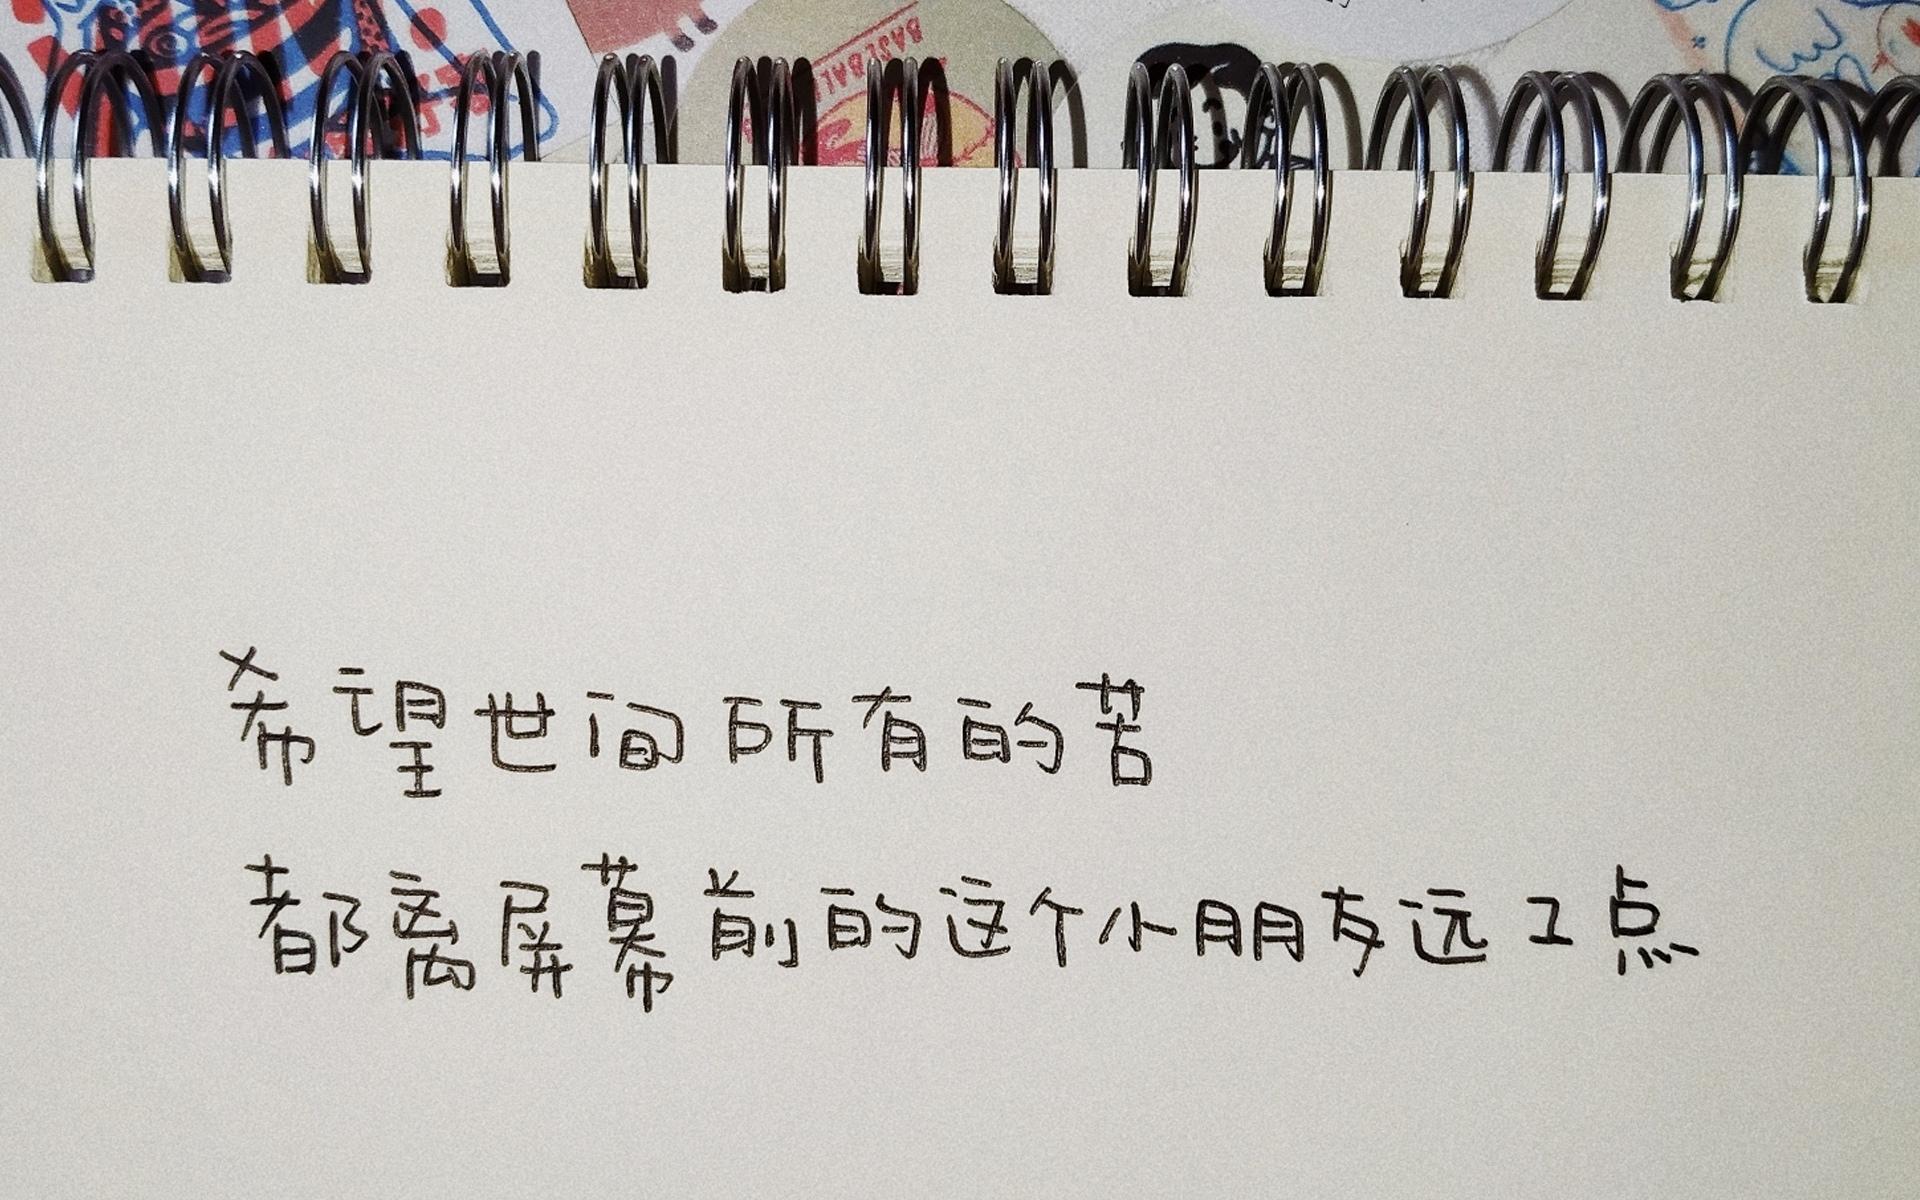 BASEBALL
希望世间所有的苦
都离屏幕前的这个小朋友远工点